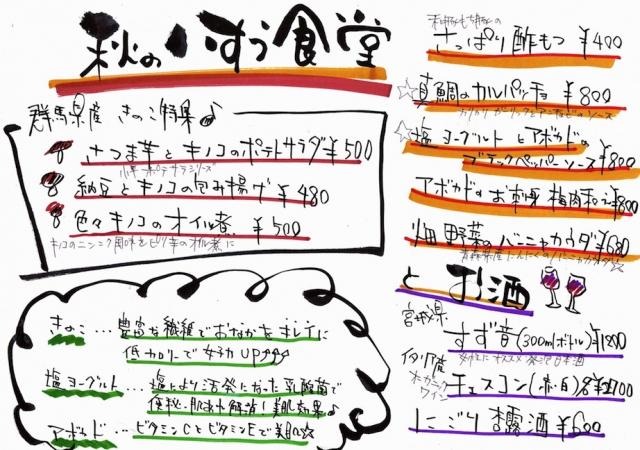 秋の いすう食堂
群馬県産 きのこ特集♪
さつま芋とキノコのポテトサラダ ¥500
納豆とキノコの包み揚げ ¥480
色々キノコのオイル煮 ¥500
キノコのニンニク風味をピリ辛のオイル煮に
きのこ…豊富な繊維でおなかをキレイに
低カロリーで女子力UP
塩ヨーグルト…塩により活発になった乳酸菌で
便秘・肌あれ解消!美肌効果♪
アボカド…ビタミンCとビタミンEで美肌☆
さっぱり酢もつ ¥400
真鯛のカルパッチョ ¥800
塩ヨーグルトとアボカドの
ブラックペッパーソース ¥800
アボカドのお刺身 梅肉和え ¥800
畑野菜のバーニャカウダ ¥680
とお酒
宮城県
すず音(300mlボトル) ¥1800
イタリア産
オーガニック
ワイン
チェスコン(赤・白)各¥2100
にごり杏露酒 ¥600